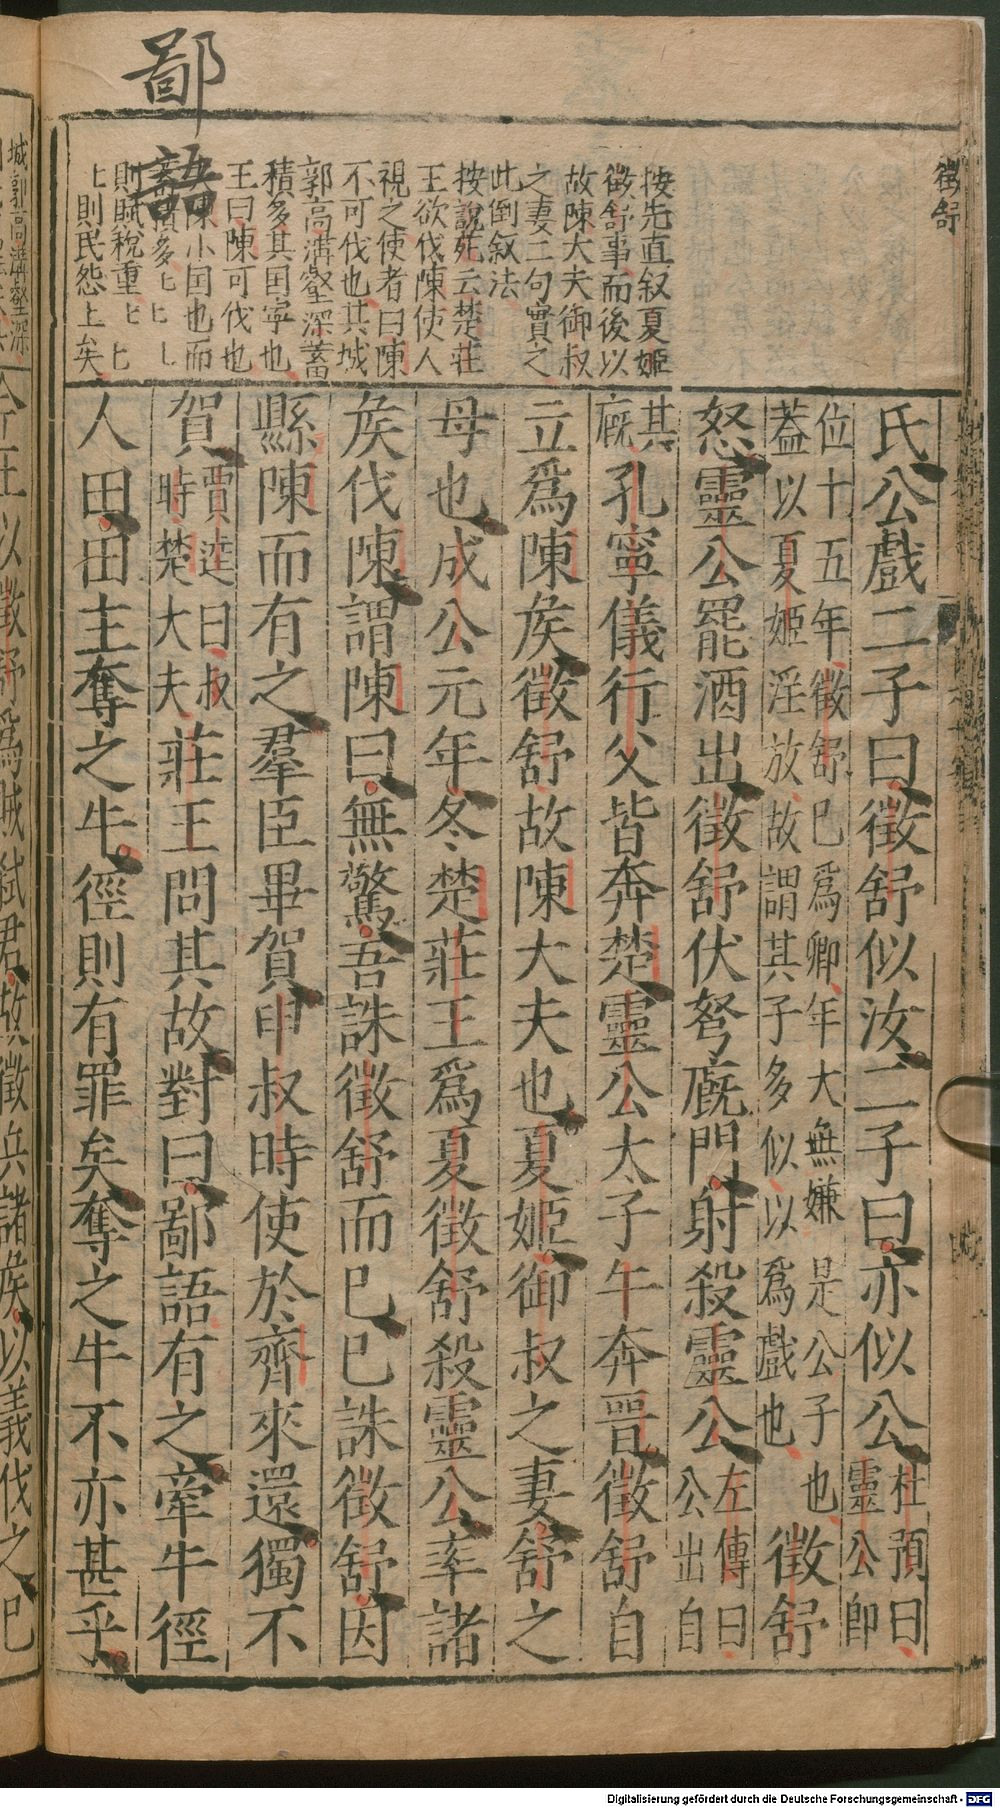 徵舒
按先直叙夏姬
徵舒事而後以
故陳大夫御叔
之妻二句實之
此倒叙法
按說苑云楚莊
王欲伐陳使人
視之使者曰陳
不可伐也其城
郭高溝壑深蓄
積多其国寧也
王曰陳可伐也
夫陳小国也而
蓄積多
則賦稅重
上則民怨上矣
鄙語
氏公戲二子曰徵舒似汝二子曰亦似公杜預曰靈公即
位十五年徵舒已爲卿年大無嫌是公子也
蓋以夏姬淫放故謂其子多似以爲戲也徵舒
怒靈公罷酒出徵舒伏弩廐門射殺靈公左傳曰公出自
其廐孔寧儀行父皆奔楚靈公太子午奔晋徵舒自
立爲陳矦徵舒故陳大夫也夏姬御叔之妻舒之
母也成公元年冬楚莊王爲夏徵舒殺靈公率諸
矦伐陳謂陳曰無驚吾誅徵舒而已已誅徵舒因
縣陳而有之羣臣畢賀申叔時使於齊來還獨不
賀賈逵曰叔時楚大夫莊王問其故對曰鄙語有之牽牛徑
人田田主奪之牛徑則有罪矣奪之牛不亦甚乎
城郭高溝壑深
今王以徵舒爲賊弒君故徵兵諸矦以義伐之已
Digitalisierung gefördert durch die Deutsche Forschungsgemeinschaft - DFG